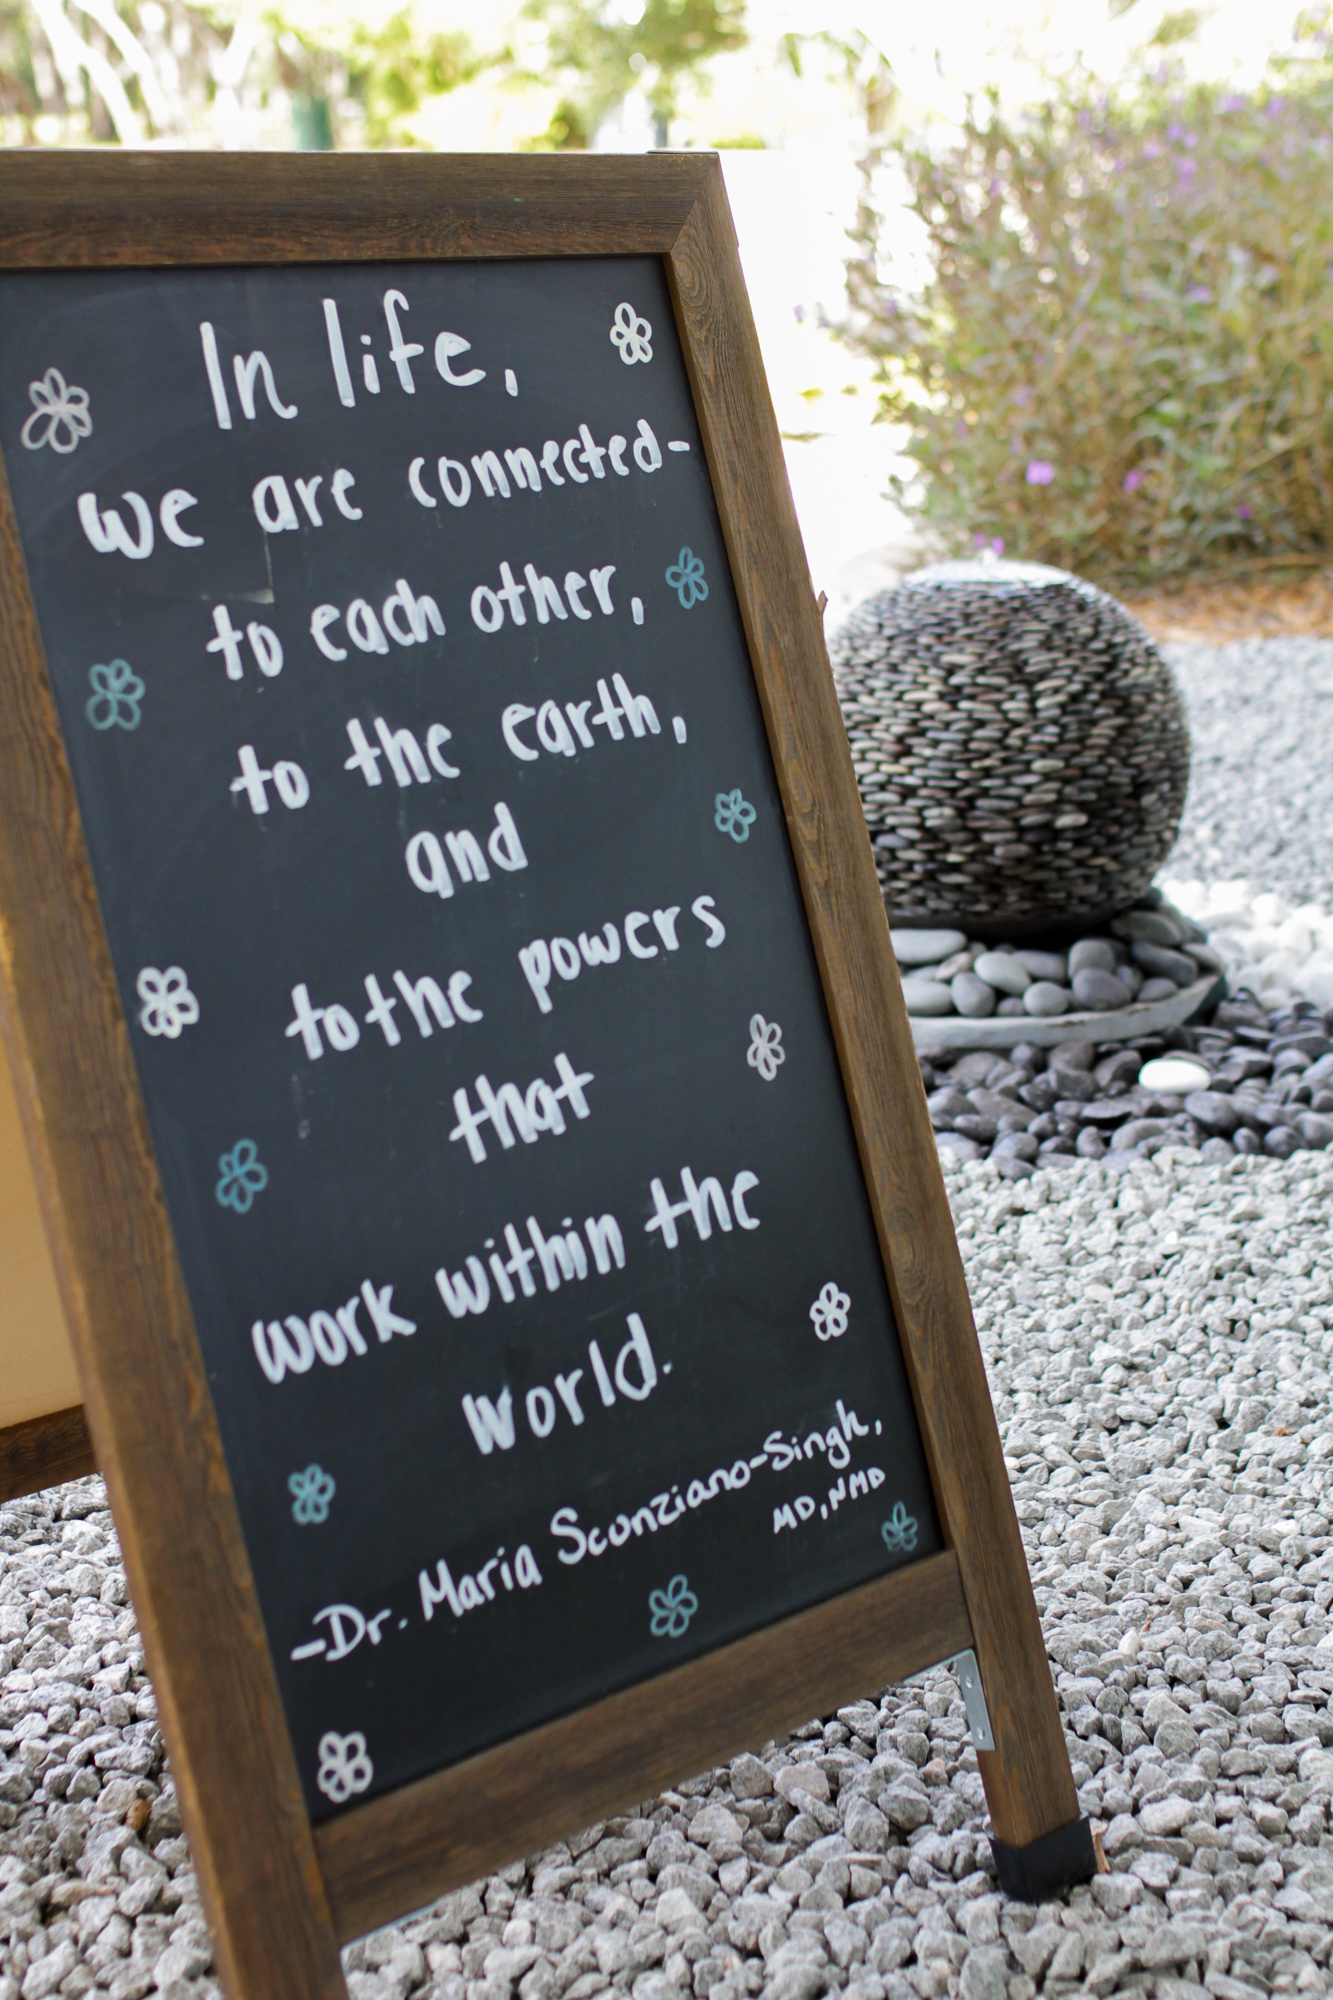 In life,
we are connected-
to each other,
to the earth,
and
to the powers
that
work within the
world.
-Dr. Maria Scunziano-Singh,
MD, NMD